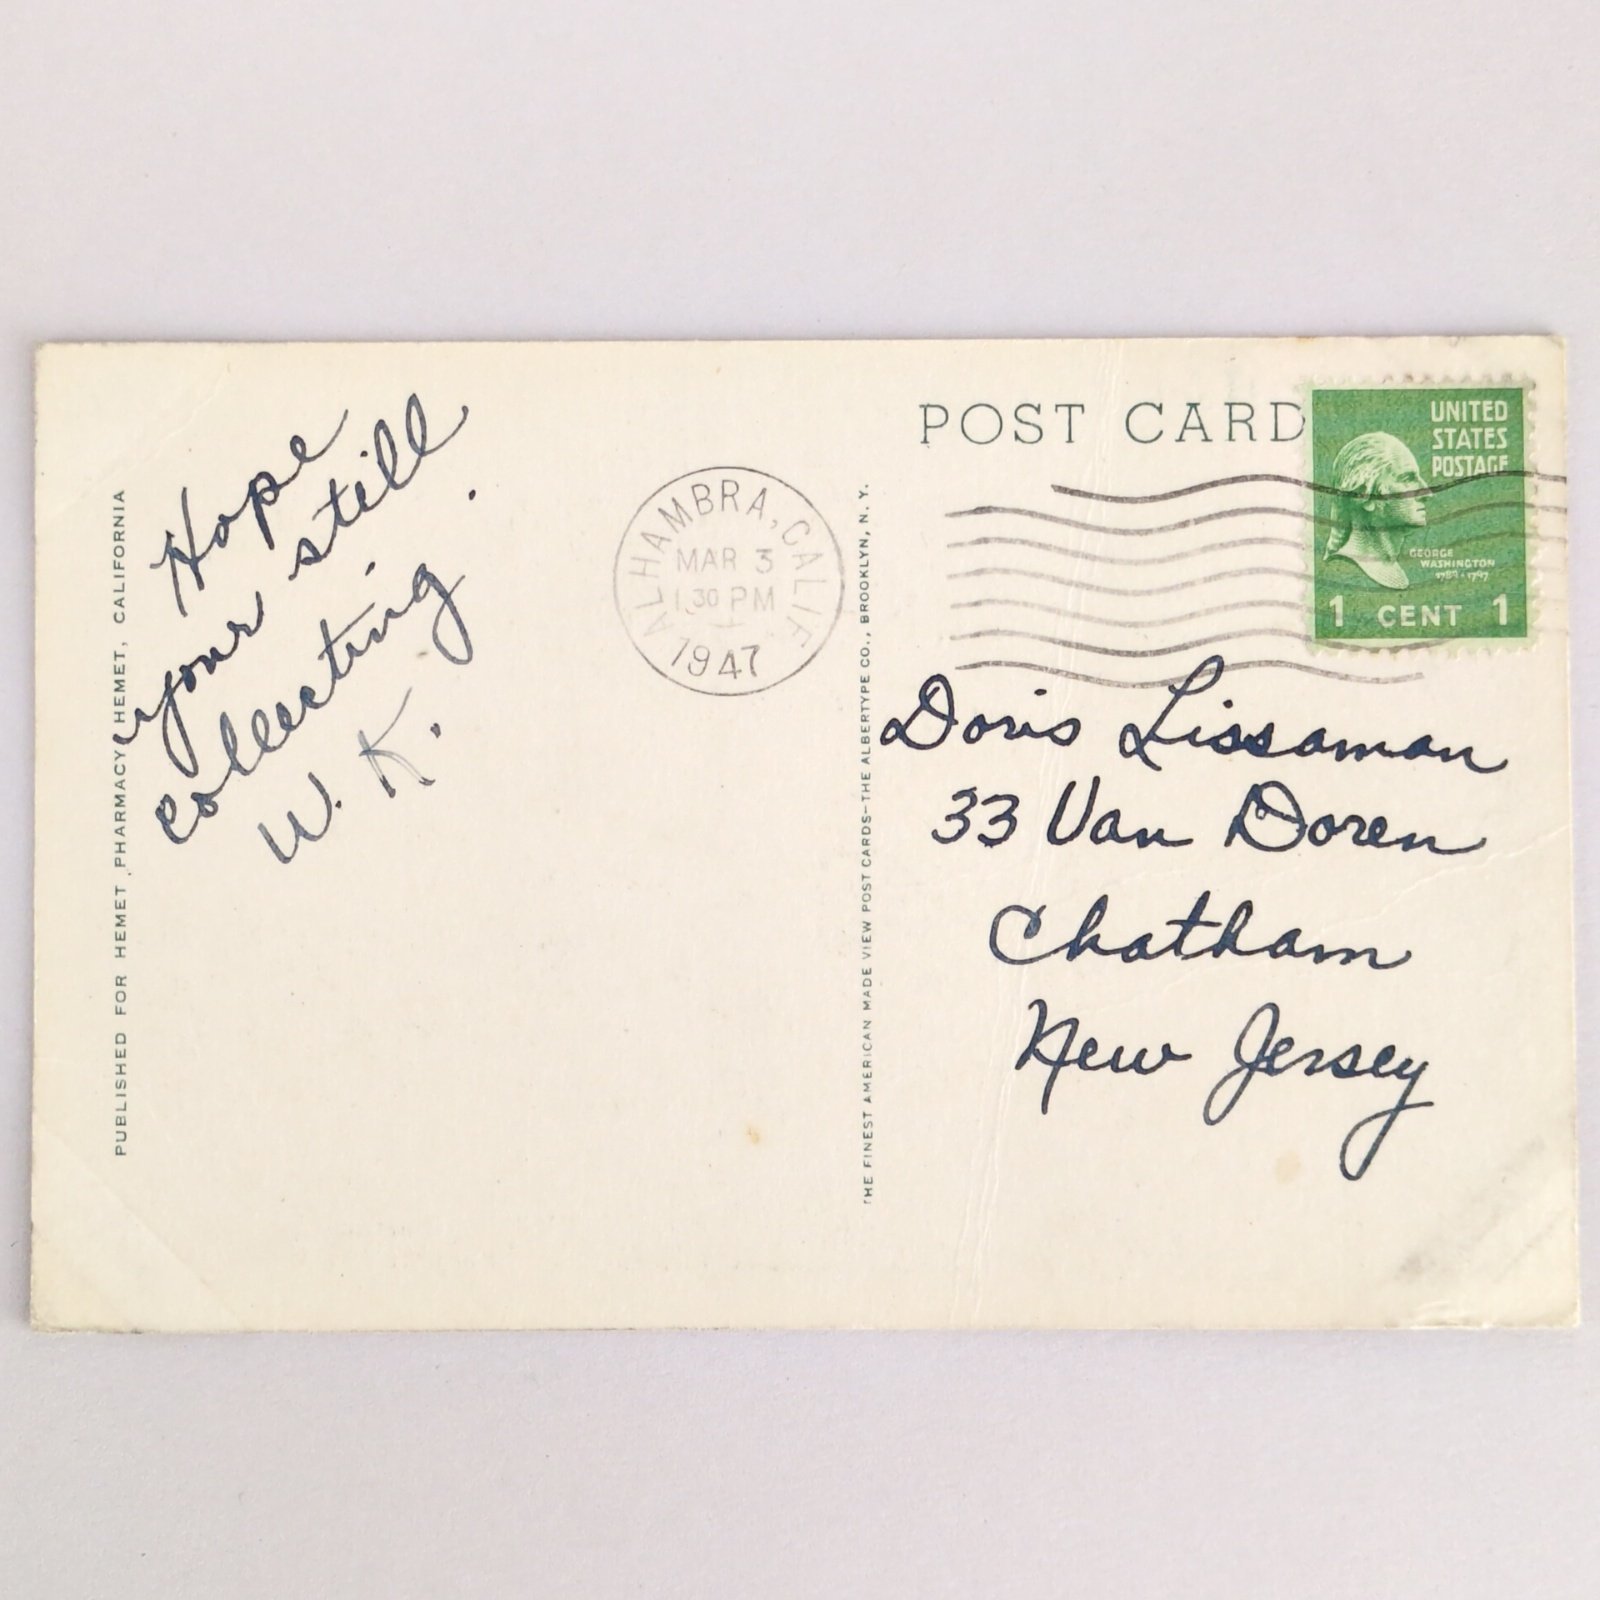 PUBLISHED FOR HEMET PHARMACY, HEMET, CALIFORNIA
Hope
your still
collecting.
W. K.
ALHAMBRA, CALIF.
MAR 3
1 30 PM
1947
THE FINEST AMERICAN MADE VIEW POST CARDS—THE ALBERTYPE CO., BROOKLYN, N. Y.
POST CARD
UNITED
STATES
POSTAGE
GEORGE
WASHINGTON
1789-1797
1 CENT 1
Doris Lissaman
33 Van Doren
Chatham
New Jersey